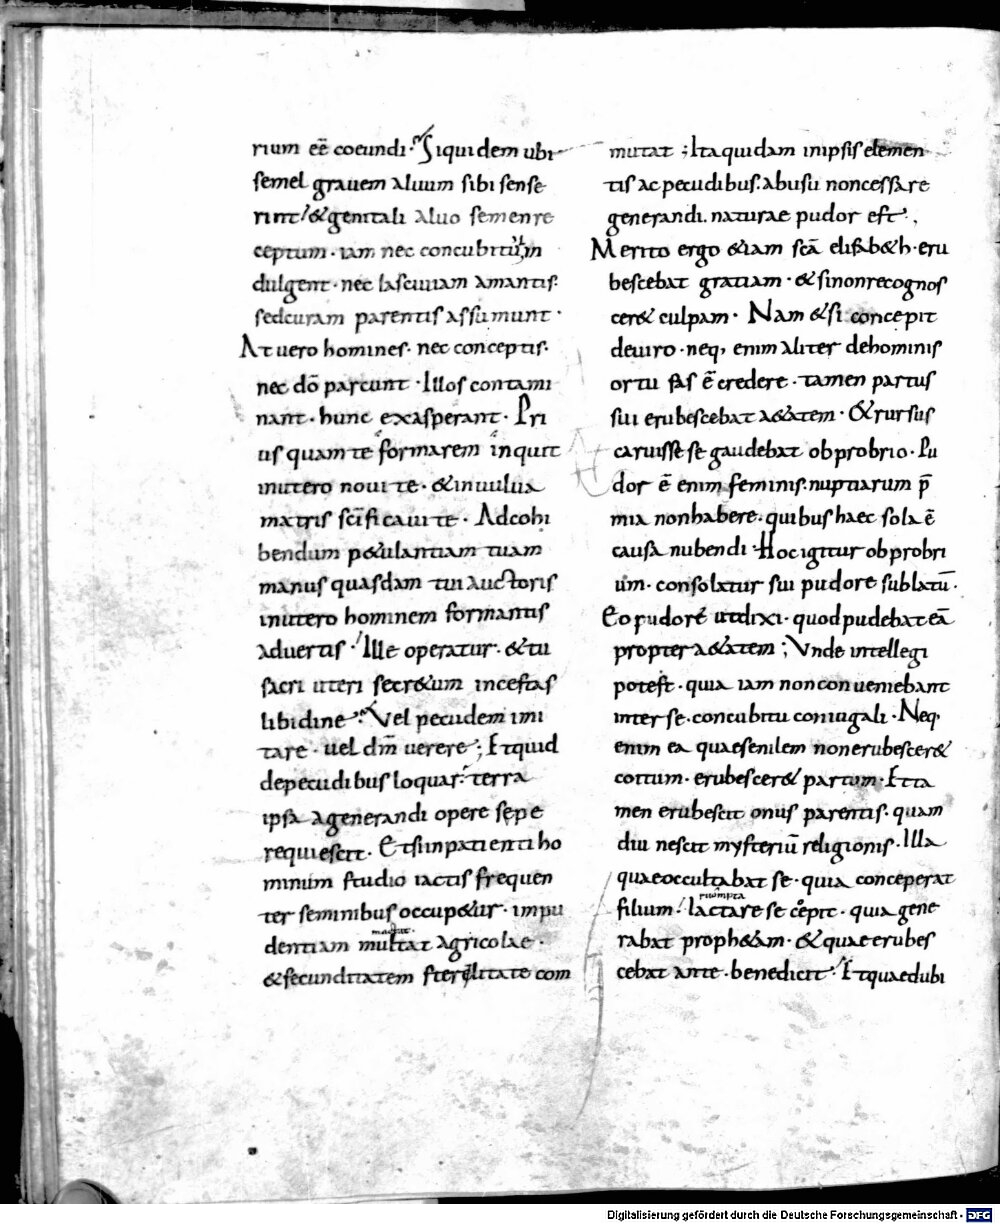 rium eē coeundi · Siquidem ubi
semel grauem aluum sibi sense
rint / & genitali aluo semen re
ceptum · iam nec concubitu in
dulgent · nec lasciuiam amantis ·
sed curam parentis assumunt ·
At uero homines · nec conceptis ·
nec dō parcunt · Illos contami
nant · hunc exasperant · Pri
us quam te formarem inquit
in utero noui te · & in uulua
matris sc̄ificaui te · Ad cohi
bendum p&ulantiam tuam
manus quasdam tui auctoris
in utero hominem formantis
aduertis · Ille operatur · & tu
sacri uteri secr&um incestas
libidine · Vel pecudem imi
tare · uel dm̄ uerere ; Et quid
de pecudibus loquar · terra
ipsa a generandi opere sepe
requiescit · Et si inpatienti ho
minum studio iactis frequen
ter seminibus occup&ur · impu
dentiam multat agricolae ·
& fecunditatem sterilitate com
mutat ; Ita quidam in ipsis elemen
tis ac pecudibus · abusu non cessare
generandi · naturae pudor est · ,
Merito ergo &iam scā elisab&h · eru
bescebat gratiam · & si non recognos
cer& culpam · Nam & si concepit
de uiro · neq, enim aliter de hominis
ortu fas ē credere · tamen partus
sui erubescebat a&atem · & rursus
caruisse se gaudebat obprobrio · Pu
dor ē enim feminis · nuptiarum p̄
mia non habere · quibus haec sola ē
causa nubendi · Hoc igitur obprobri
um · consolatur sui pudore sublatū ·
Eo pudore ut dixi · quod pudebat eā
propter a&atem ; Vnde intellegi
potest · quia iam non conueniebant
inter se · concubitu coniugali · Neq,
enim ea quae senilem non erubescer&
coitum · erubescer& partum · Et ta
men erubescit onus parentis · quam
diu nescit mysteriū religionis · Illa
quae occultabat se · quia conceperat
filium · lactare se cepit · quia gene
rabat proph&am · & quae erubes
cebat ante · benedicit · Et quae dubi
Digitalisierung gefördert durch die Deutsche Forschungsgemeinschaft - DFG